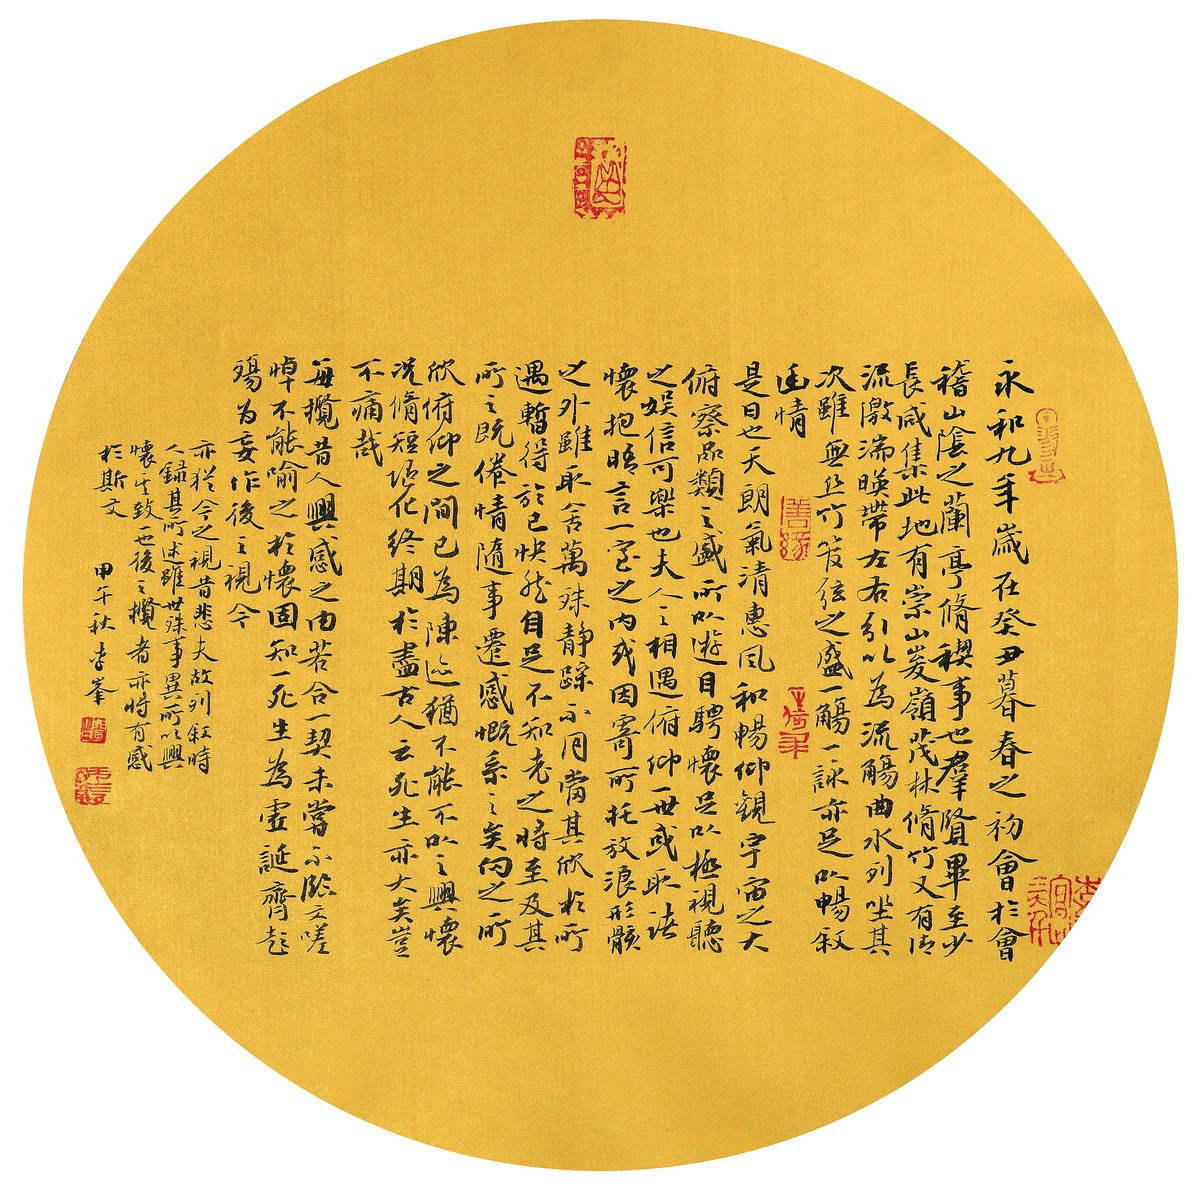 永和九年歲在癸丑暮春之初會於會
稽山陰之蘭亭脩稧事也羣賢畢至少
長咸集此地有崇山峻嶺茂林脩竹又有清
流激湍暎帶左右引以為流觴曲水列坐其
次雖無絲竹管弦之盛一觴一詠亦足以暢敘
幽情
是日也天朗氣清惠風和暢仰觀宇宙之大
俯察品類之盛所以遊目騁懷足以極視聽
之娛信可樂也夫人之相遇俯仰一世或取諸
懷抱晤言一室之內或因寄所託放浪形骸
之外雖取舍萬殊静躁不同當其欣於所
遇暫得於己快然自足不知老之將至及其
所之既倦情隨事遷感慨系之矣向之所
欣俯仰之間已為陳迹猶不能不以之興懷
况脩短隨化終期於盡古人云死生亦大矣豈
不痛哉
每攬昔人興感之由若合一契未嘗不臨文嗟
悼不能喻之於懷固知一死生為虛誕齊彭
殤為妄作後之視今
亦猶今之視昔悲夫故列叙時
人錄其所述雖世殊事異所以興
懷其致一也後之攬者亦將有感
於斯文
甲午秋 李峯
善緣